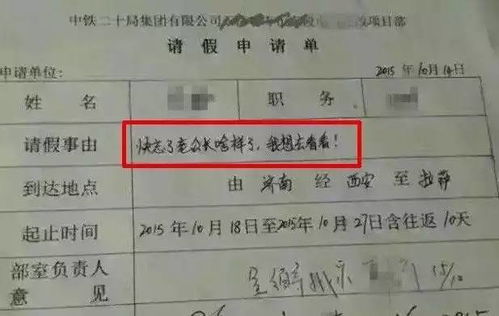 中铁二十局集团有限公司 项目部
请假申请单
申请单位： 2015年10月14日
姓名 职务
请假事由 快忘了老公长啥样了，我想去看看！
到达地点 由 济南 经 西安 至 拉萨
起止时间 2015年10月18日至2015年10月27日含往返10天
部室负责人
意见